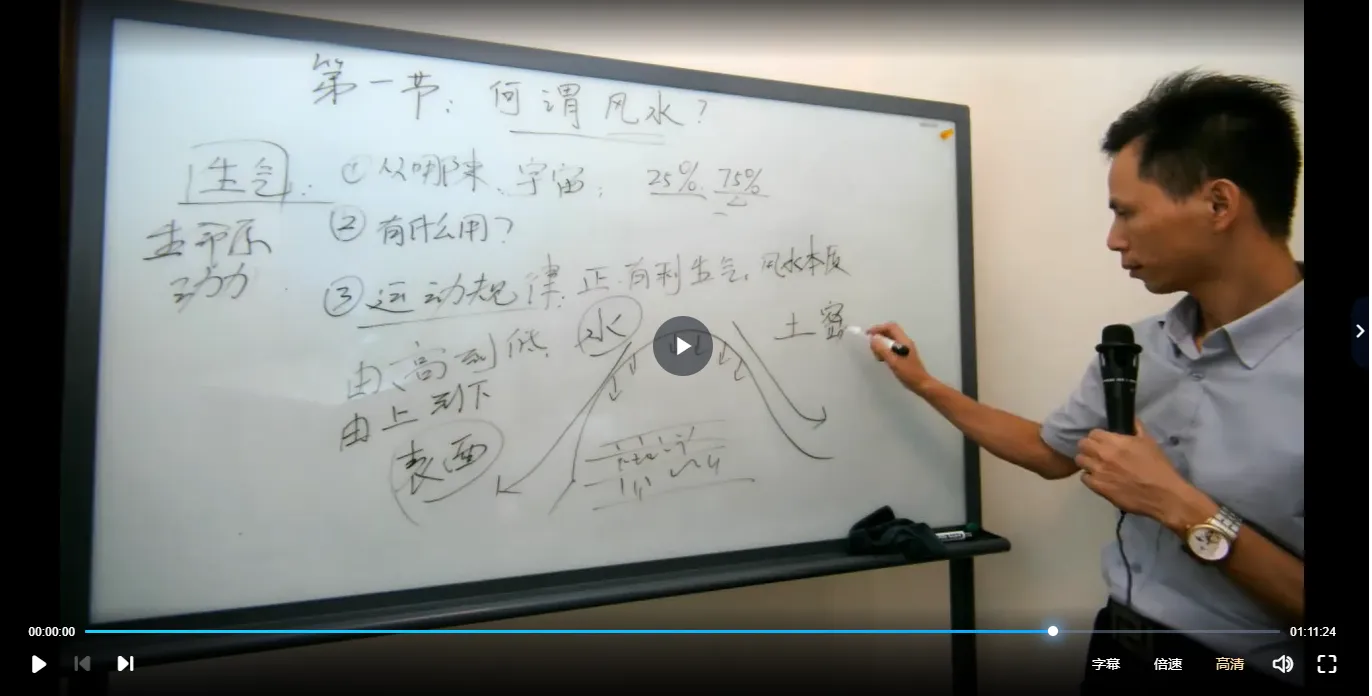 第一节：何谓风水？
生气：
生命原
动力
① 从哪来、宇宙：25%. 75%
② 有什么用？
③ 运动规律：正.有利生气. 风水本质
由高到低. 水
由上到下
表面
土密
00:00:00
01:11:24
字幕 倍速 高清